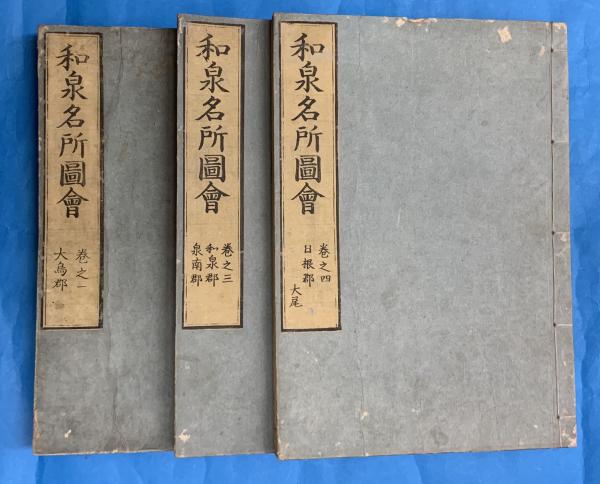 和泉名所圖會
巻之四
日根郡
大尾
和泉名所圖會
巻之三
和泉郡
泉南郡
和泉名所圖會
巻之一
大鳥郡